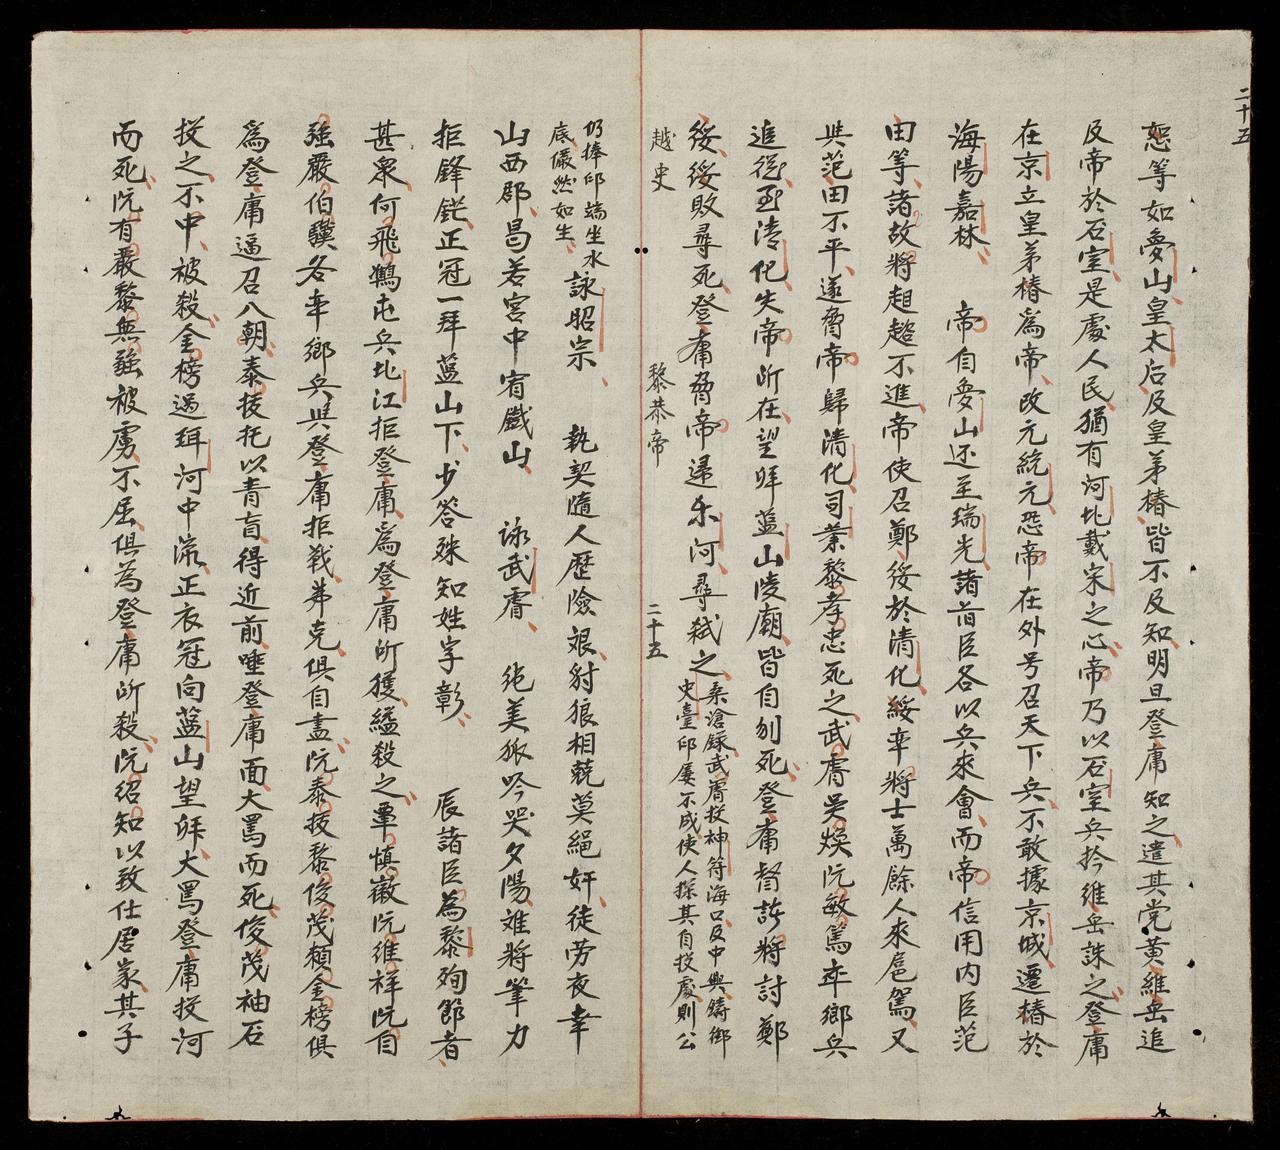 二十五
恕等如夢山皇太后及皇弟椿皆不及知明旦登庸知之遣其党黄維岳追
及帝於石室是處人民猶有河北戴宋之心帝乃以石室兵擒維岳誅之登庸
在京立皇弟椿為帝改元統元恐帝在外号召天下兵不敢據京城遷椿於
海陽嘉林 帝自夢山还至瑞光諸旧臣各以兵來會而帝信用内臣范
田等諸故將趄趦不進帝使召鄭綏於清化綏率將士萬餘人來扈駕又
與范田不平遂脅帝歸清化司業黎孝忠死之武睿吳煥阮敏篤率鄉兵
追從至清化失帝所在望拜藍山陵廟皆自刎死登庸督諸將討鄭
綏綏敗尋死登庸脅帝還东河尋弑之
桒滄録武睿投神符海口及中興鑄御
史臺印屢不成使人探其自投處則公
越史 黎恭帝 二十五
仍捧印端坐水
底儼然如生
詠昭宗 執契隨人歷險艱豺狼相競莫絕奸徒劳夜幸
山西郡曷若宮中宥鐵山 詠武睿 絶美狐吟哭夕陽难將筆力
拒鋒鋩正冠一拜藍山下少答殊知姓字彰 辰諸臣為黎殉節者
甚衆何飛鶴屯兵北江拒登庸為登庸所獲縊殺之覃慎徽阮維祥阮自
强嚴伯驥各率鄉兵與登庸拒戰弗克俱自盡阮泰拔黎俊茂賴金榜俱
為登庸逼召入朝泰拔托以青盲得近前唾登庸面大罵而死俊茂袖石
投之不中被殺金榜過珥河中流正衣冠向藍山望拜大罵登庸投河
而死阮有嚴黎無疆被虏不屈俱為登庸所殺阮紹知以致仕居家其子